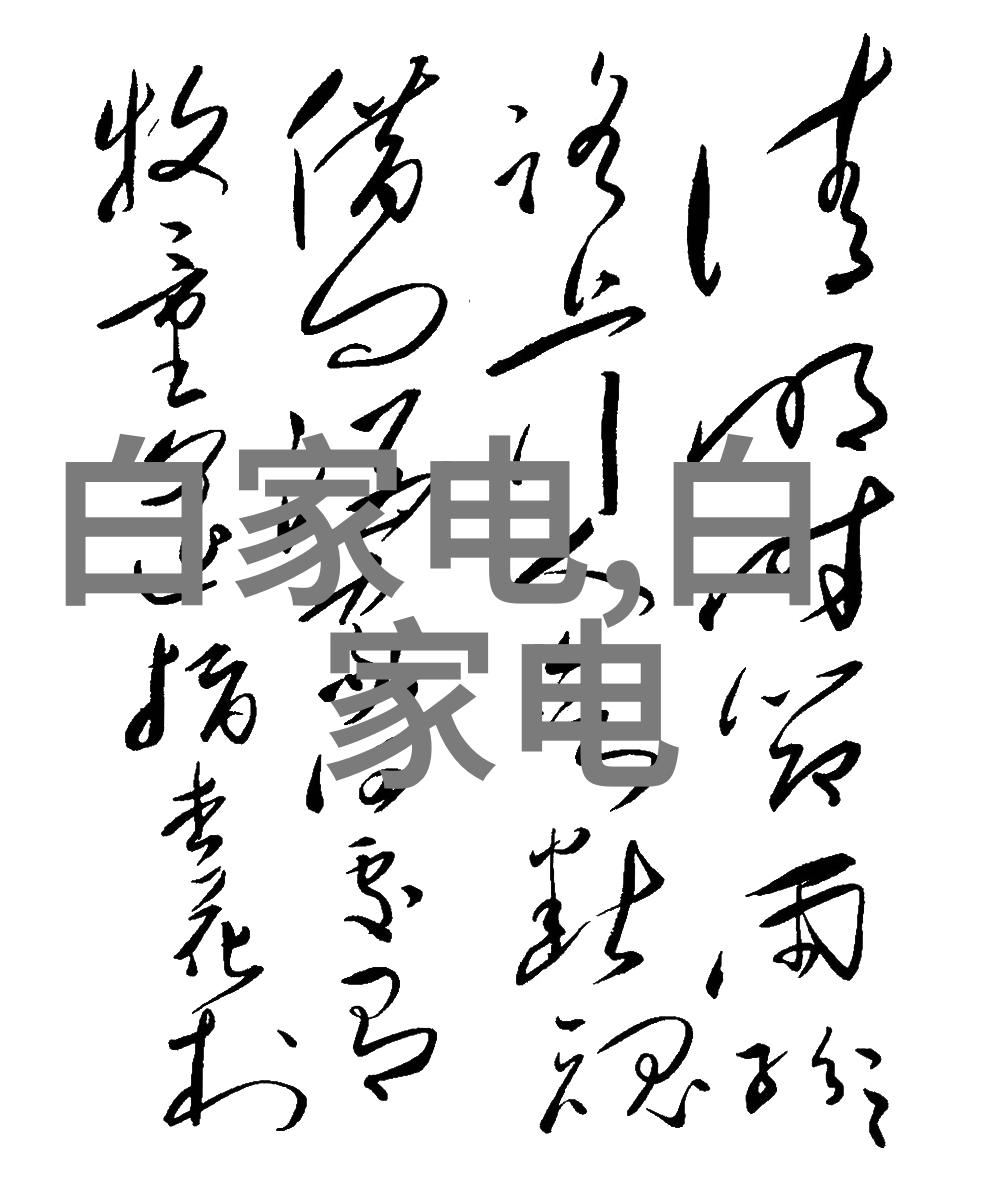 清明时节雨纷纷
路上行人欲断魂
借问酒家何处有
牧童遥指杏花村
白家电,白
家电